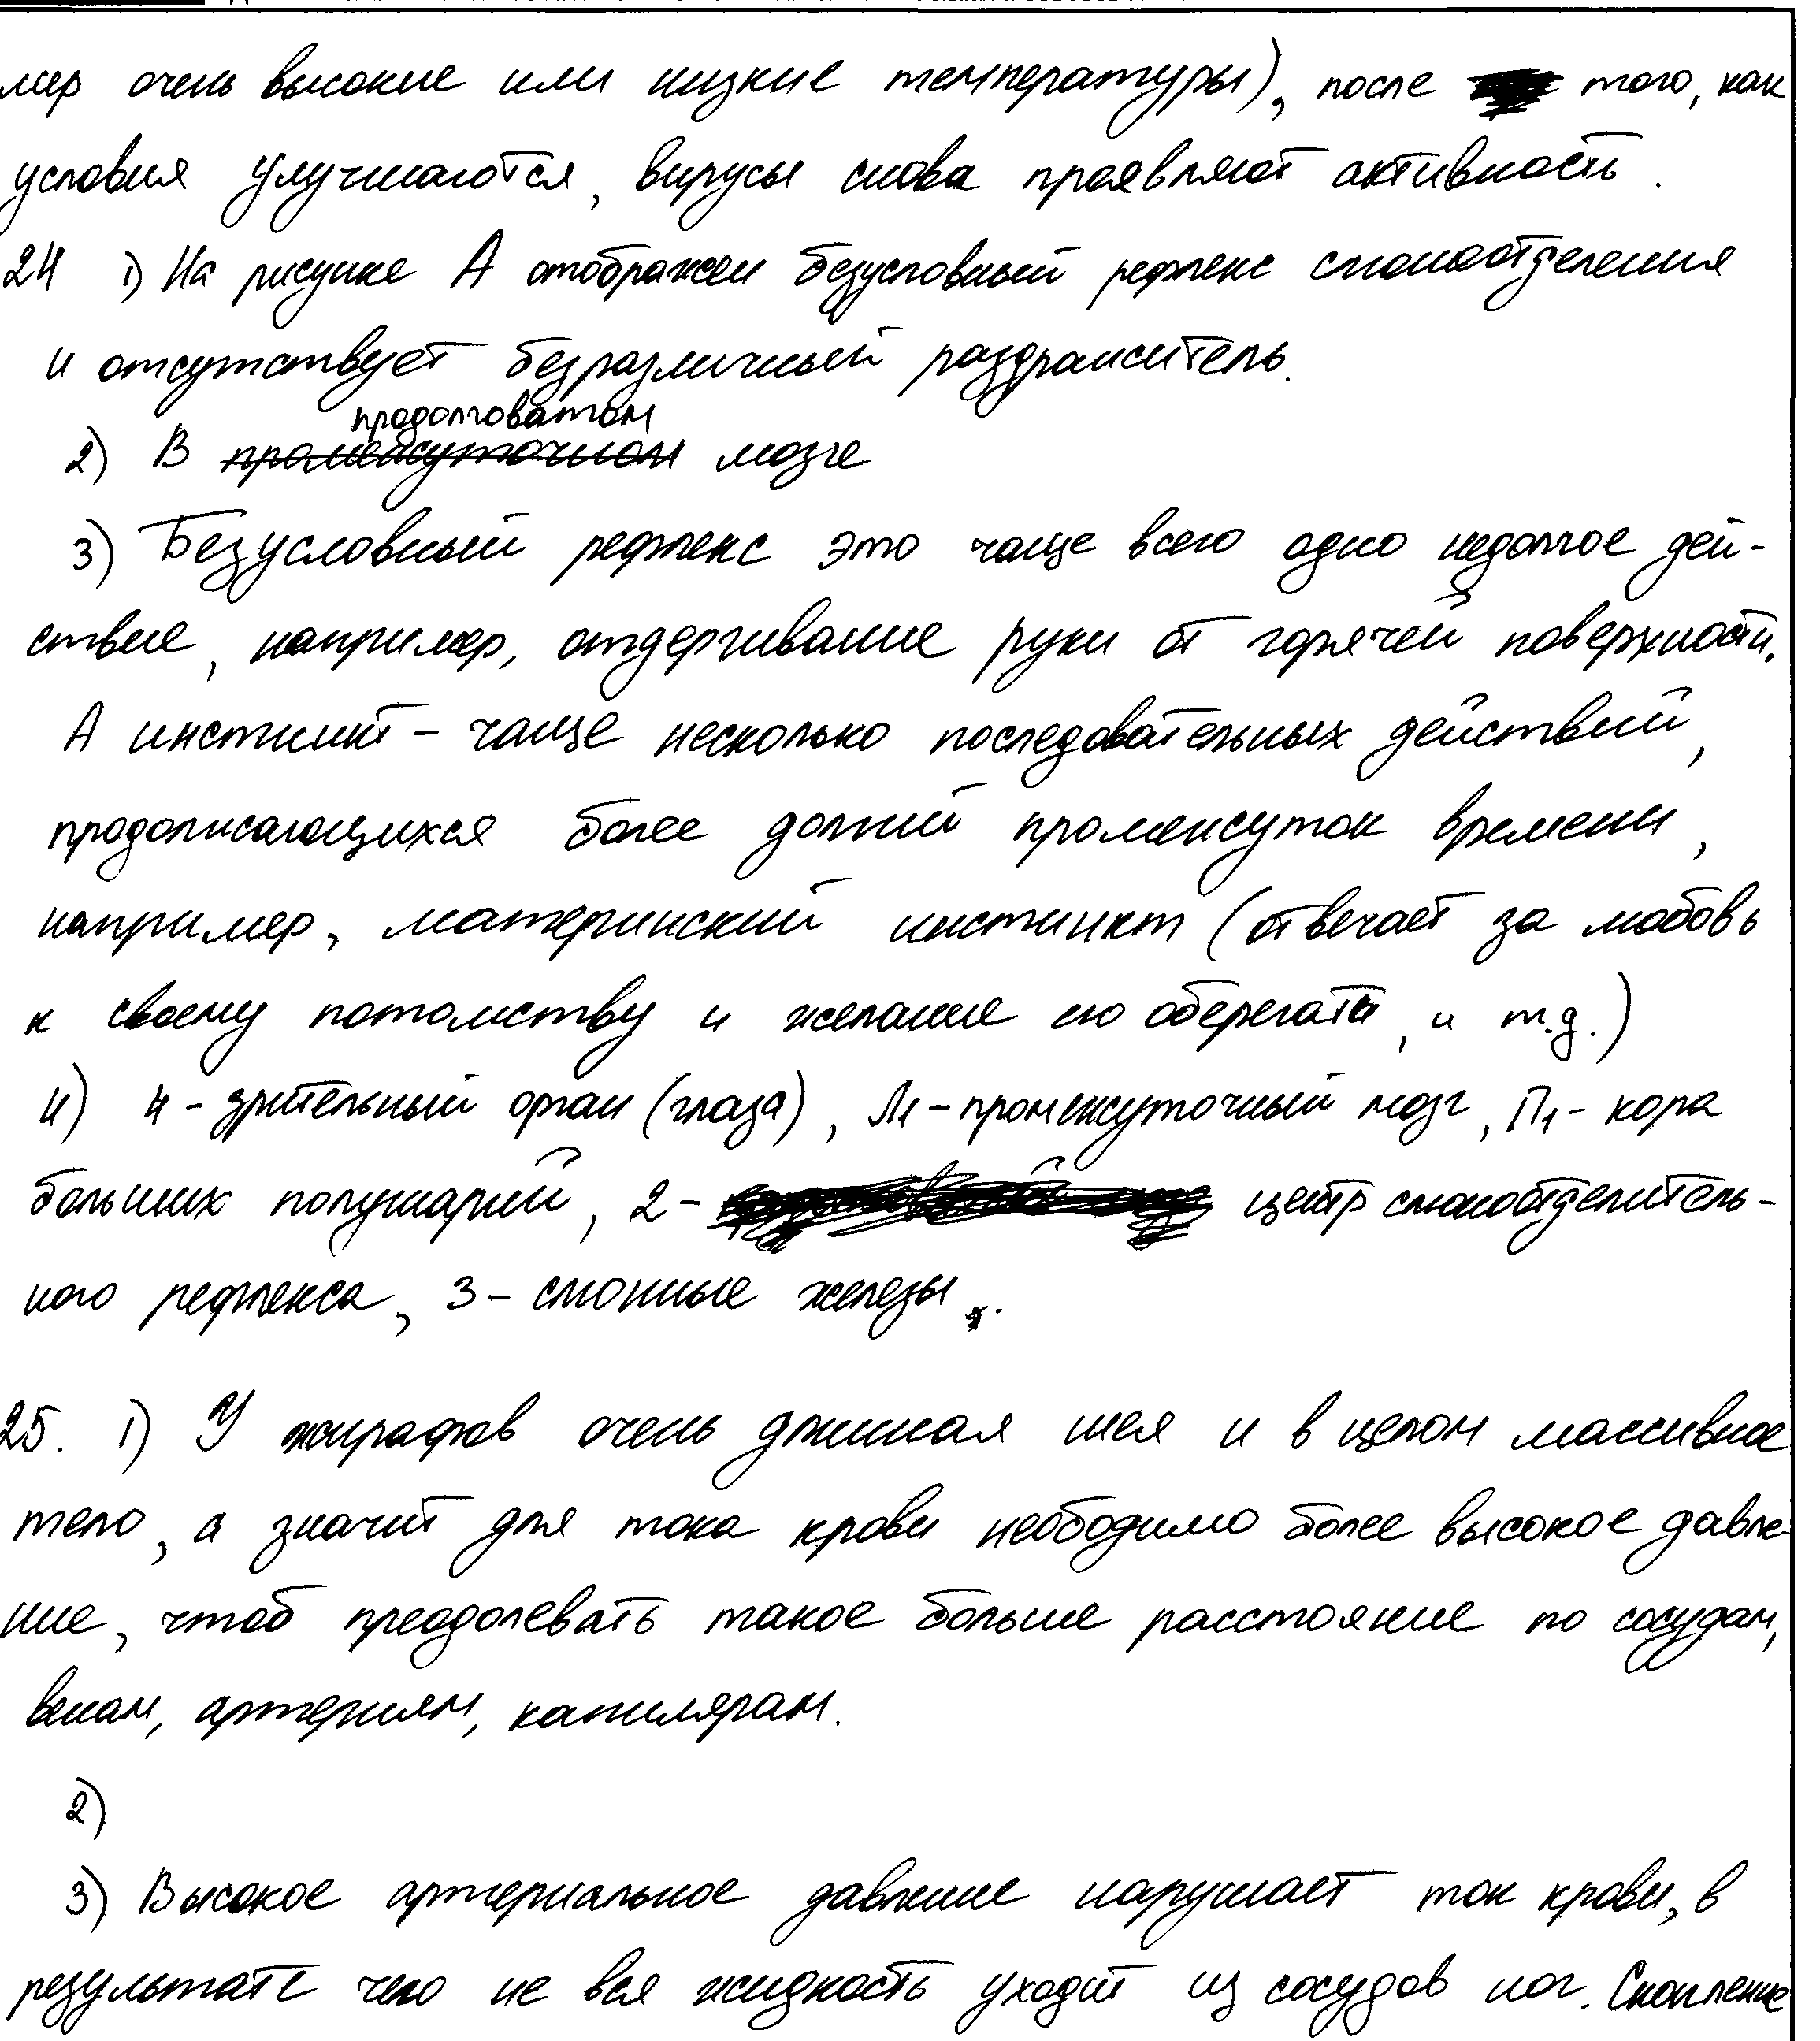 мер очень высокие или низкие температуры), после того, как
условия улучшаются, вирусы снова проявляют активность.
24 1) На рисунке А отображен безусловный рефлекс слюноотделения
и отсутствует безразличный раздражитель.
продолговатом
2) В промежуточном мозге
3) Безусловный рефлекс это чаще всего одно недолгое дей-
ствие, например, отдергивание руки от горячей поверхности.
А инстинкт - чаще несколько последовательных действий,
продолжающихся более долгий промежуток времени,
например, материнский инстинкт (отвечает за любовь
к своему потомству и желание его оберегать, и т.д.)
4) 4 - зрительный орган (глаза), Л1 - промежуточный мозг, П1 - кора
больших полушарий, 2 - центр слюноотделитель-
ного рефлекса, 3 - слюнные железы.
25. 1) У жирафов очень длинная шея и в целом массивное
тело, а значит для тока крови необходимо более высокое давле-
ние, чтоб преодолевать такое больше расстояние по сосудам,
венам, артериям, капилярам.
2)
3) Высокое артериальное давление нарушает ток крови, в
результате чего не вся жидкость уходит из сосудов ног. Скопление